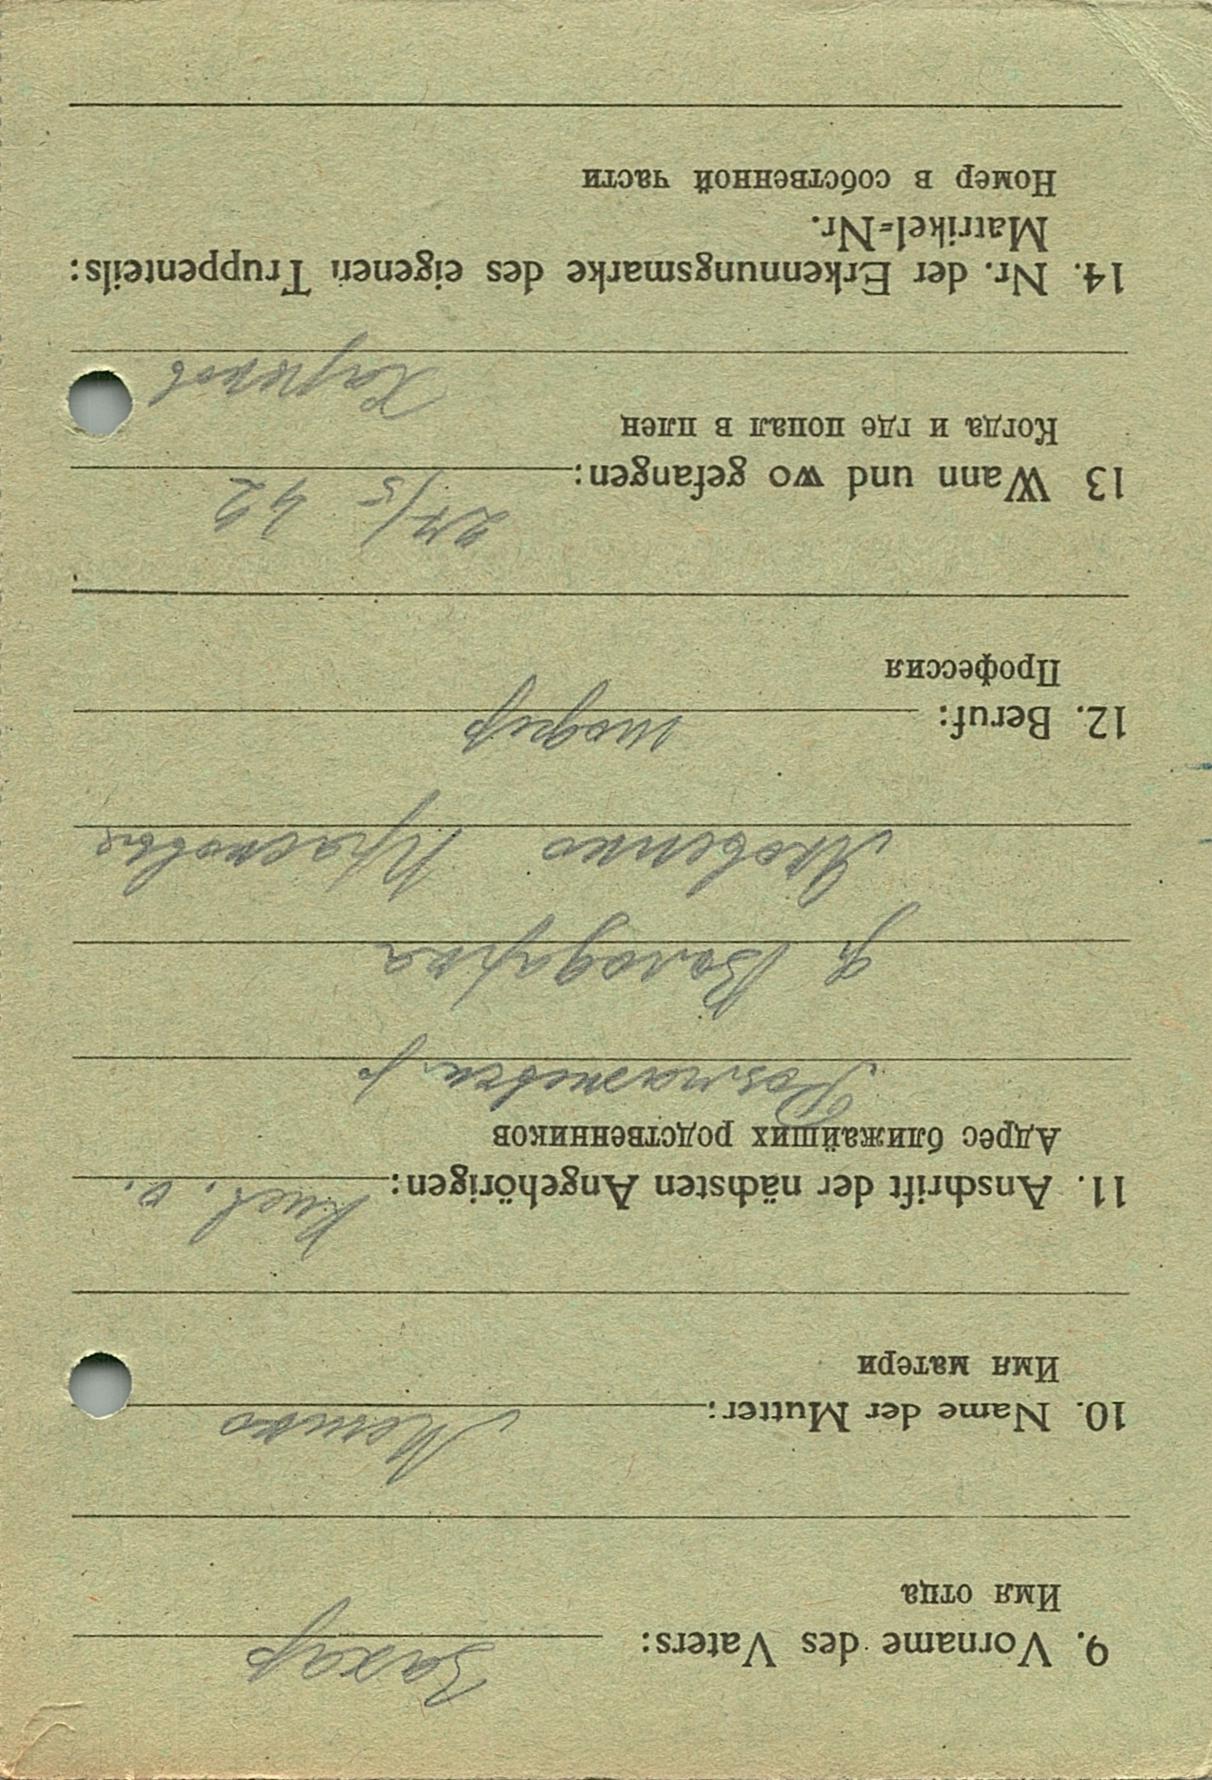 9. Vorname des Vaters: Захар
Имя отца
10. Name der Mutter:
Имя матери
11. Anschrift der nächsten Angehörigen: Киев. о.
Адрес ближайших родственников
р.
д. Володарка
Яковенко
12. Beruf: шофер
Профессия
27/5 42
13 Wann und wo gefangen:
Когда и где попал в плен
Харьков
14. Nr. der Erkennungsmarke des eigenen Truppenteils:
Matrikel=Nr.
Номер в собственной части